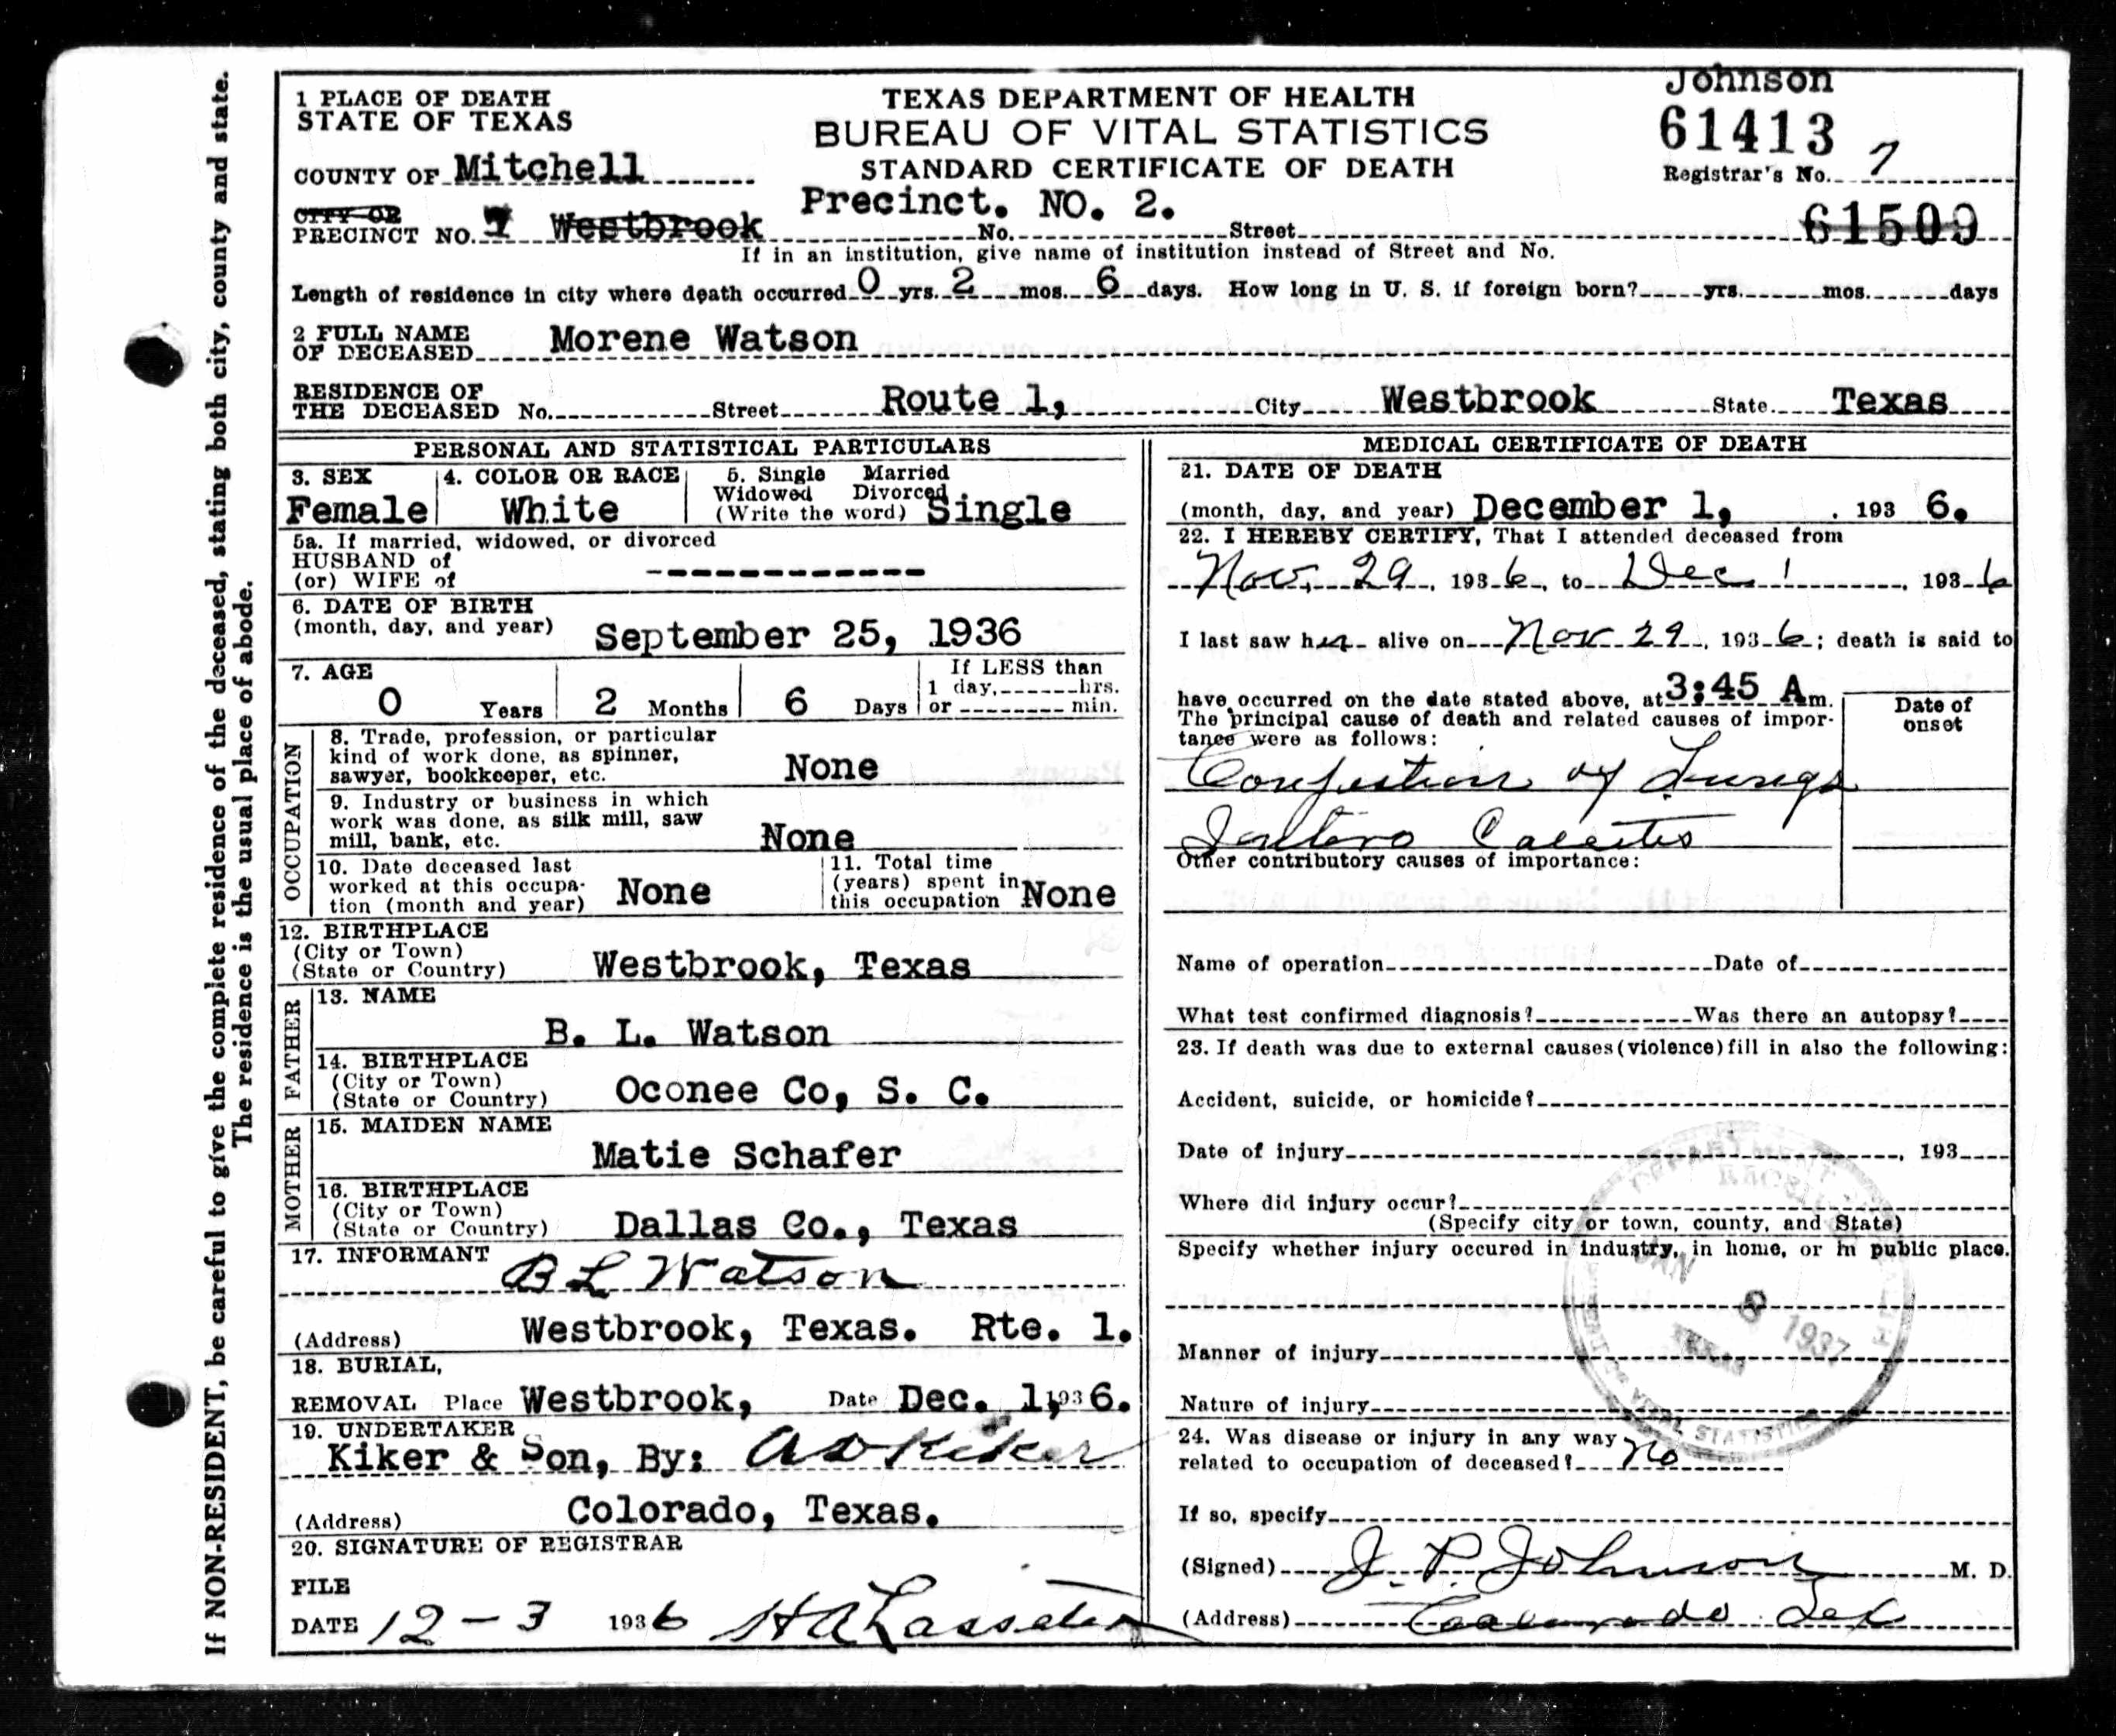 If NON-RESIDENT, be careful to give the complete residence of the deceased, stating both city, county and state.
The residence is the usual place of abode.
1 PLACE OF DEATH
STATE OF TEXAS
COUNTY OF Mitchell
TEXAS DEPARTMENT OF HEALTH
BUREAU OF VITAL STATISTICS
STANDARD CERTIFICATE OF DEATH
Johnson
61413
Registrar's No. 7
Precinct. NO. 2.
CITY OR
PRECINCT NO. 1 Westbrook No. Street 61509
If in an institution, give name of institution instead of Street and No.
Length of residence in city where death occurred 0 yrs. 2 mos. 6 days. How long in U. S. if foreign born? yrs. mos. days
2 FULL NAME
OF DECEASED Morene Watson
RESIDENCE OF
THE DECEASED No. Street Route 1, City Westbrook State Texas
PERSONAL AND STATISTICAL PARTICULARS
3. SEX
Female
4. COLOR OR RACE
White
5. Single Married
Widowed Divorced
(Write the word) Single
5a. If married, widowed, or divorced
HUSBAND of
(or) WIFE of -------------
6. DATE OF BIRTH
(month, day, and year) September 25, 1936
7. AGE
0 Years 2 Months 6 Days
If LESS than
1 day, hrs.
or min.
OCCUPATION
8. Trade, profession, or particular
kind of work done, as spinner,
sawyer, bookkeeper, etc. None
9. Industry or business in which
work was done, as silk mill, saw
mill, bank, etc. None
10. Date deceased last
worked at this occupa-
tion (month and year) None
11. Total time
(years) spent in
this occupation None
12. BIRTHPLACE
(City or Town)
(State or Country) Westbrook, Texas
FATHER
13. NAME
B. L. Watson
14. BIRTHPLACE
(City or Town)
(State or Country) Oconee Co, S. C.
MOTHER
15. MAIDEN NAME
Matie Schafer
16. BIRTHPLACE
(City or Town)
(State or Country) Dallas Co., Texas
17. INFORMANT B L Watson
(Address) Westbrook, Texas. Rte. 1.
18. BURIAL,
REMOVAL Place Westbrook, Date Dec. 1, 1936.
19. UNDERTAKER
Kiker & Son, By: A D Kiker
(Address) Colorado, Texas.
20. SIGNATURE OF REGISTRAR
FILE
DATE 12-3 1936 H A Lasseter
MEDICAL CERTIFICATE OF DEATH
21. DATE OF DEATH
(month, day, and year) December 1, . 193 6.
22. I HEREBY CERTIFY, That I attended deceased from
Nov. 29, 1936, to Dec 1, 1936
I last saw her alive on Nov 29, 1936; death is said to
have occurred on the date stated above, at 3:45 A m.
The principal cause of death and related causes of impor-
tance were as follows:
Date of
onset
Congestion of Lungs
Other contributory causes of importance:
Name of operation Date of
What test confirmed diagnosis? Was there an autopsy?
23. If death was due to external causes (violence) fill in also the following:
Accident, suicide, or homicide?
Date of injury , 193
Where did injury occur?
(Specify city or town, county, and State)
Specify whether injury occured in industry, in home, or in public place.
JAN 8 1937
TEXAS
VITAL STATISTICS
Manner of injury
Nature of injury
24. Was disease or injury in any way
related to occupation of deceased? No
If so, specify
(Signed) J. P. Johnson M. D.
(Address) Colorado Tex